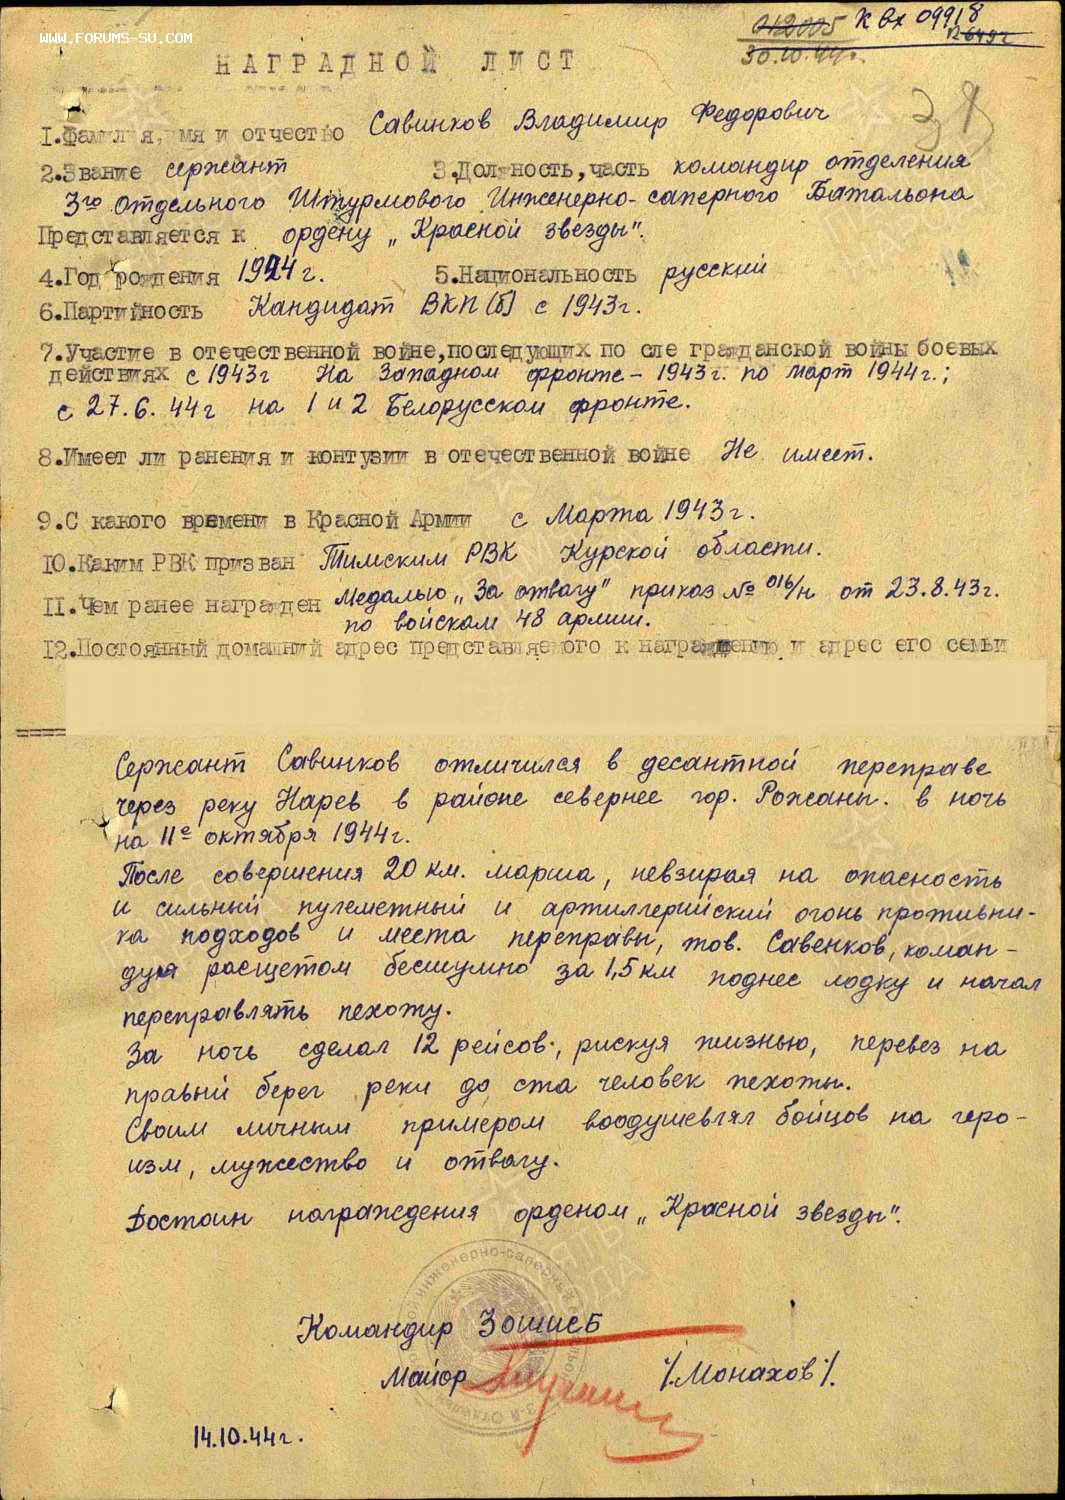 WWW.FORUMS-SU.COM
012005 К Вх 09918
30.10.44г.
НАГРАДНОЙ ЛИСТ
38
1.Фамилия,имя и отчество Савинков Владимир Федорович
2.Звание сержант 3.Должность,часть командир отделения
3го Отдельного Штурмового Инженерно-саперного Батальона
Представляется к ордену „Красной звезды".
4.Год рождения 1924г. 5.Национальность русский
6.Партийность Кандидат ВКП(б) с 1943г.
7.Участие в отечественной войне,последующих по сле гражданской войны боевых
действиях с 1943г На Западном фронте - 1943г. по март 1944г.;
с 27.6.44г на 1 и 2 Белорусском фронте.
8.Имеет ли ранения и контузии в отечественной войне Не имеет.
9.С какого времени в Красной Армии с Марта 1943г.
10.Каким РВК призван Тимским РВК Курской области.
11.Чем ранее награжден Медалью „За отвагу" приказ № 016/н от 23.8.43г.
по войскам 48 армии.
12.Постоянный домашний адрес представляемого к награждению и адрес его семьи
Сержант Савинков отличился в десантной переправе
через реку Нарев в районе севернее гор. Рожаны. в ночь
на 11е октября 1944г.
После совершения 20 км. марша, невзирая на опасность
и сильный пулеметный и артиллерийский огонь противни-
ка подходов и места переправы, тов. Савенков, коман-
дуя расщетом бесшумно за 1,5 км поднес лодку и начал
переправлять пехоту.
За ночь сделал 12 рейсов, рискуя жизнью, перевез на
правый берег реки до ста человек пехоты.
Своим личным примером воодушевлял бойцов на геро-
изм, мужество и отвагу.
Достоин награждения орденом „Красной звезды".
Командир 3ОШИСБ
Майор /.Монахов/.
14.10.44г.